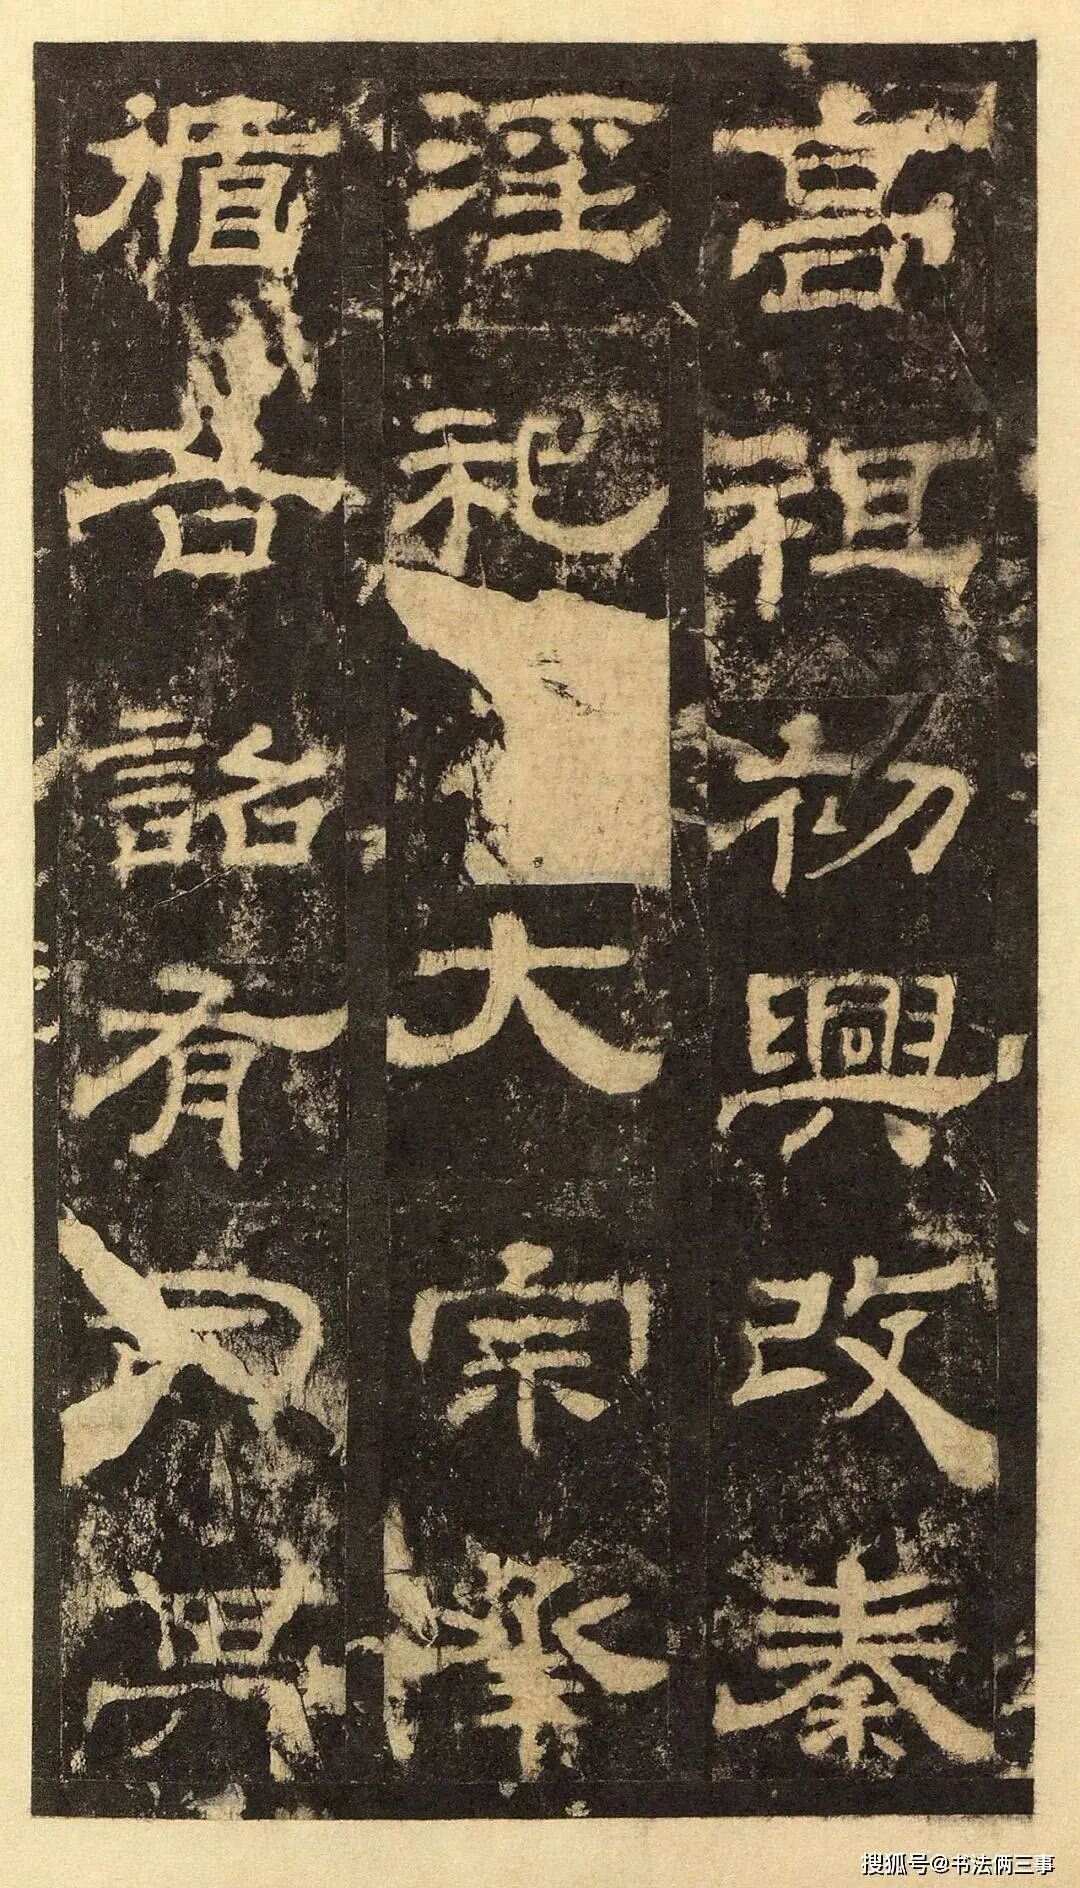 高祖初興改秦
淫祀大宗承
循各詔有司其
搜狐号@书法俩三事